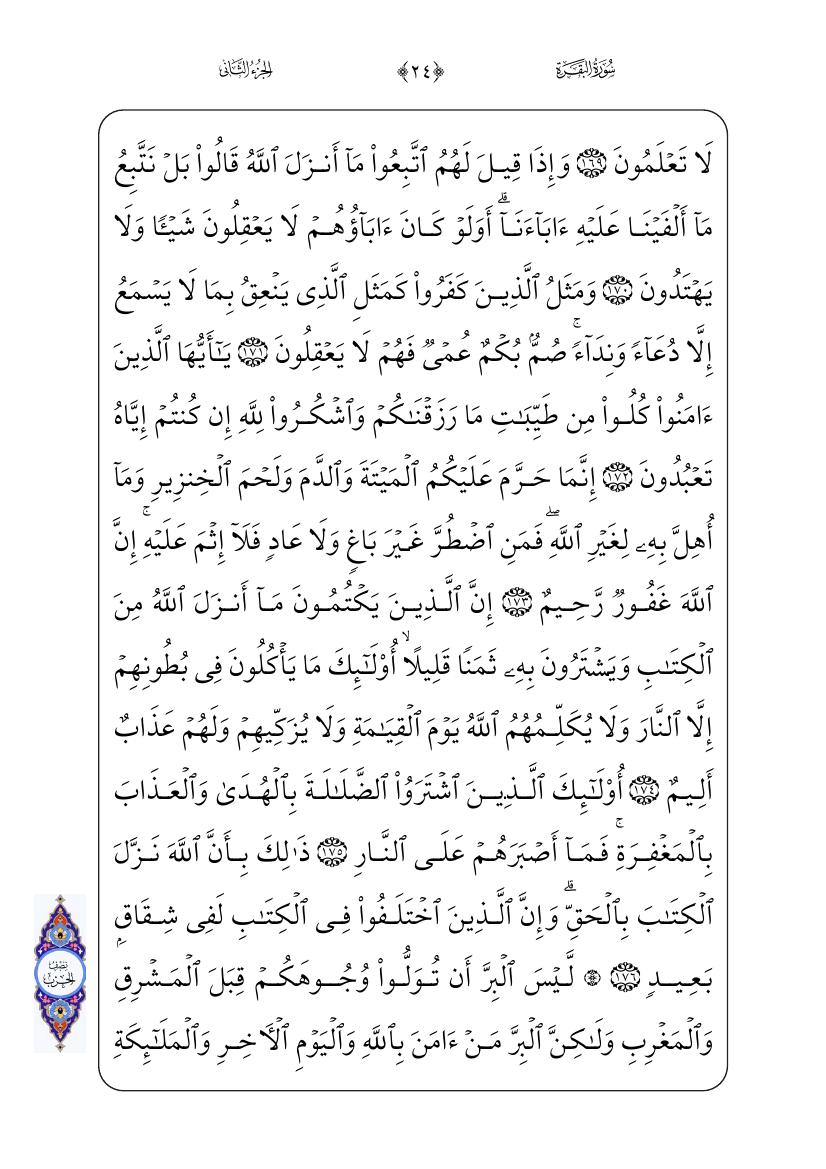 سُورَةُ البَقَرَةِ ﴿٢٤﴾ الجُزْءُ الثَّانِي
لَا تَعۡلَمُونَ ١٦٩ وَإِذَا قِيلَ لَهُمُ ٱتَّبِعُواْ مَآ أَنزَلَ ٱللَّهُ قَالُواْ بَلۡ نَتَّبِعُ
مَآ أَلۡفَيۡنَا عَلَيۡهِ ءَابَآءَنَآۚ أَوَلَوۡ كَانَ ءَابَآؤُهُمۡ لَا يَعۡقِلُونَ شَيۡـٔٗا وَلَا
يَهۡتَدُونَ ١٧٠ وَمَثَلُ ٱلَّذِينَ كَفَرُواْ كَمَثَلِ ٱلَّذِي يَنۡعِقُ بِمَا لَا يَسۡمَعُ
إِلَّا دُعَآءٗ وَنِدَآءٗۚ صُمُّۢ بُكۡمٌ عُمۡيٞ فَهُمۡ لَا يَعۡقِلُونَ ١٧١ يَـٰٓأَيُّهَا ٱلَّذِينَ
ءَامَنُواْ كُلُواْ مِن طَيِّبَٰتِ مَا رَزَقۡنَٰكُمۡ وَٱشۡكُرُواْ لِلَّهِ إِن كُنتُمۡ إِيَّاهُ
تَعۡبُدُونَ ١٧٢ إِنَّمَا حَرَّمَ عَلَيۡكُمُ ٱلۡمَيۡتَةَ وَٱلدَّمَ وَلَحۡمَ ٱلۡخِنزِيرِ وَمَآ
أُهِلَّ بِهِۦ لِغَيۡرِ ٱللَّهِۖ فَمَنِ ٱضۡطُرَّ غَيۡرَ بَاغٖ وَلَا عَادٖ فَلَآ إِثۡمَ عَلَيۡهِۚ إِنَّ
ٱللَّهَ غَفُورٞ رَّحِيمٌ ١٧٣ إِنَّ ٱلَّذِينَ يَكۡتُمُونَ مَآ أَنزَلَ ٱللَّهُ مِنَ
ٱلۡكِتَٰبِ وَيَشۡتَرُونَ بِهِۦ ثَمَنٗا قَلِيلًاۙ أُوْلَـٰٓئِكَ مَا يَأۡكُلُونَ فِي بُطُونِهِمۡ
إِلَّا ٱلنَّارَ وَلَا يُكَلِّمُهُمُ ٱللَّهُ يَوۡمَ ٱلۡقِيَٰمَةِ وَلَا يُزَكِّيهِمۡ وَلَهُمۡ عَذَابٌ
أَلِيمٌ ١٧٤ أُوْلَـٰٓئِكَ ٱلَّذِينَ ٱشۡتَرَوُاْ ٱلضَّلَٰلَةَ بِٱلۡهُدَىٰ وَٱلۡعَذَابَ
بِٱلۡمَغۡفِرَةِۚ فَمَآ أَصۡبَرَهُمۡ عَلَى ٱلنَّارِ ١٧٥ ذَٰلِكَ بِأَنَّ ٱللَّهَ نَزَّلَ
ٱلۡكِتَٰبَ بِٱلۡحَقِّۗ وَإِنَّ ٱلَّذِينَ ٱخۡتَلَفُواْ فِي ٱلۡكِتَٰبِ لَفِي شِقَاقِۭ
بَعِيدٖ ١٧٦ ۞ لَّيۡسَ ٱلۡبِرَّ أَن تُوَلُّواْ وُجُوهَكُمۡ قِبَلَ ٱلۡمَشۡرِقِ
وَٱلۡمَغۡرِبِ وَلَٰكِنَّ ٱلۡبِرَّ مَنۡ ءَامَنَ بِٱللَّهِ وَٱلۡيَوۡمِ ٱلۡأٓخِرِ وَٱلۡمَلَـٰٓئِكَةِ
نِصْفُ
الحِزْبِ